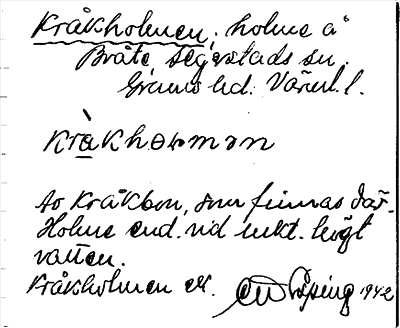 Kråkholmen, holme å
Bråte Segerstads sn.
Grums hd. Värml. l.
kràkhɷmən
Av Kråkbon, som finnas där.
Holme end. vid mkt. högt
vatten.
Kråkholmen ek. 1942